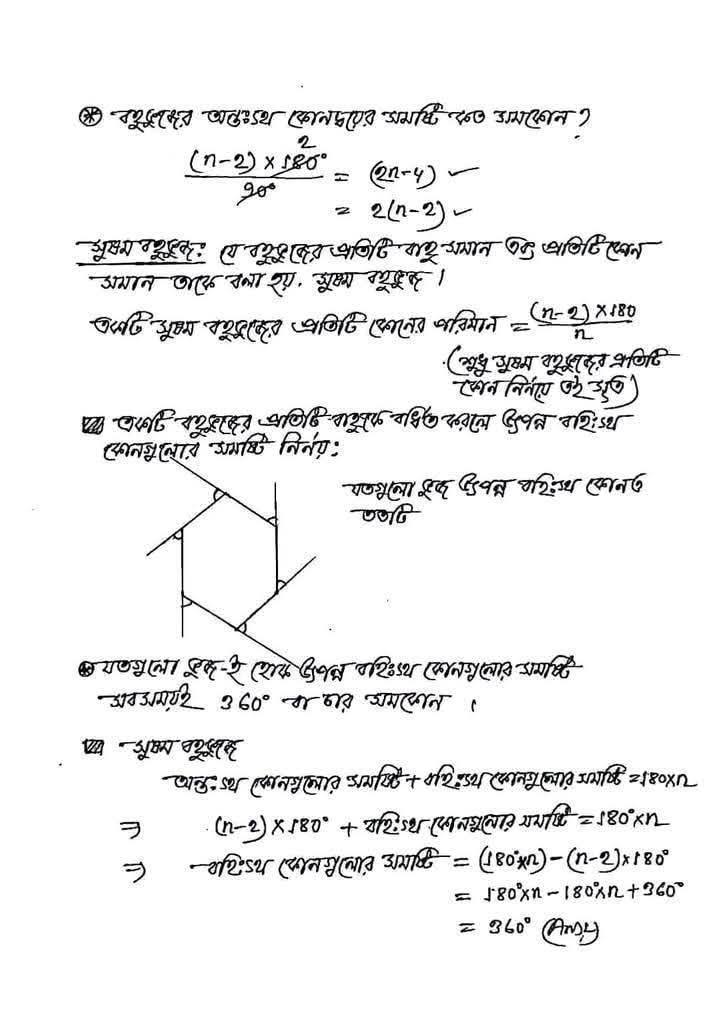 ⊛ বহুভুজের অন্তঃস্থ কোনদ্বয়ের সমষ্টি কত সমকোন?
(n-2) × 180° / 90° 2 = (2n-4) ✓
= 2(n-2) ✓
সুষম বহুভুজ: যে বহুভুজের প্রতিটি বাহু সমান এবং প্রতিটি কোন
সমান তাকে বলা হয়. সুষম বহুভুজ।
একটি সুষম বহুভুজের প্রতিটি কোনের পরিমান = (n-2) × 180 / n
(শুধু সুষম বহুভুজের প্রতিটি
কোন নির্নয়ে এই সূত্র)
একটি বহুভুজের প্রতিটি বাহুকে বর্ধিত করলে উৎপন্ন বহিঃস্থ
কোনগুলোর সমষ্টি নির্নয়:
যতগুলো ভুজ উৎপন্ন বহিঃস্থ কোনও
ততটি
⊛ যতগুলো ভুজ-ই হোক উৎপন্ন বহিঃস্থ কোনগুলোর সমষ্টি
সবসময়ই 360° বা চার সমকোন ।
সুষম বহুভুজে
অন্তঃস্থ কোনগুলোর সমষ্টি + বহিঃস্থ কোনগুলোর সমষ্টি = 180×n
⇒ (n-2) × 180° + বহিঃস্থ কোনগুলোর সমষ্টি = 180°×n
⇒ বহিঃস্থ কোনগুলোর সমষ্টি = (180°×n) - (n-2)×180°
= 180°×n - 180°×n + 360°
= 360° (Ans)